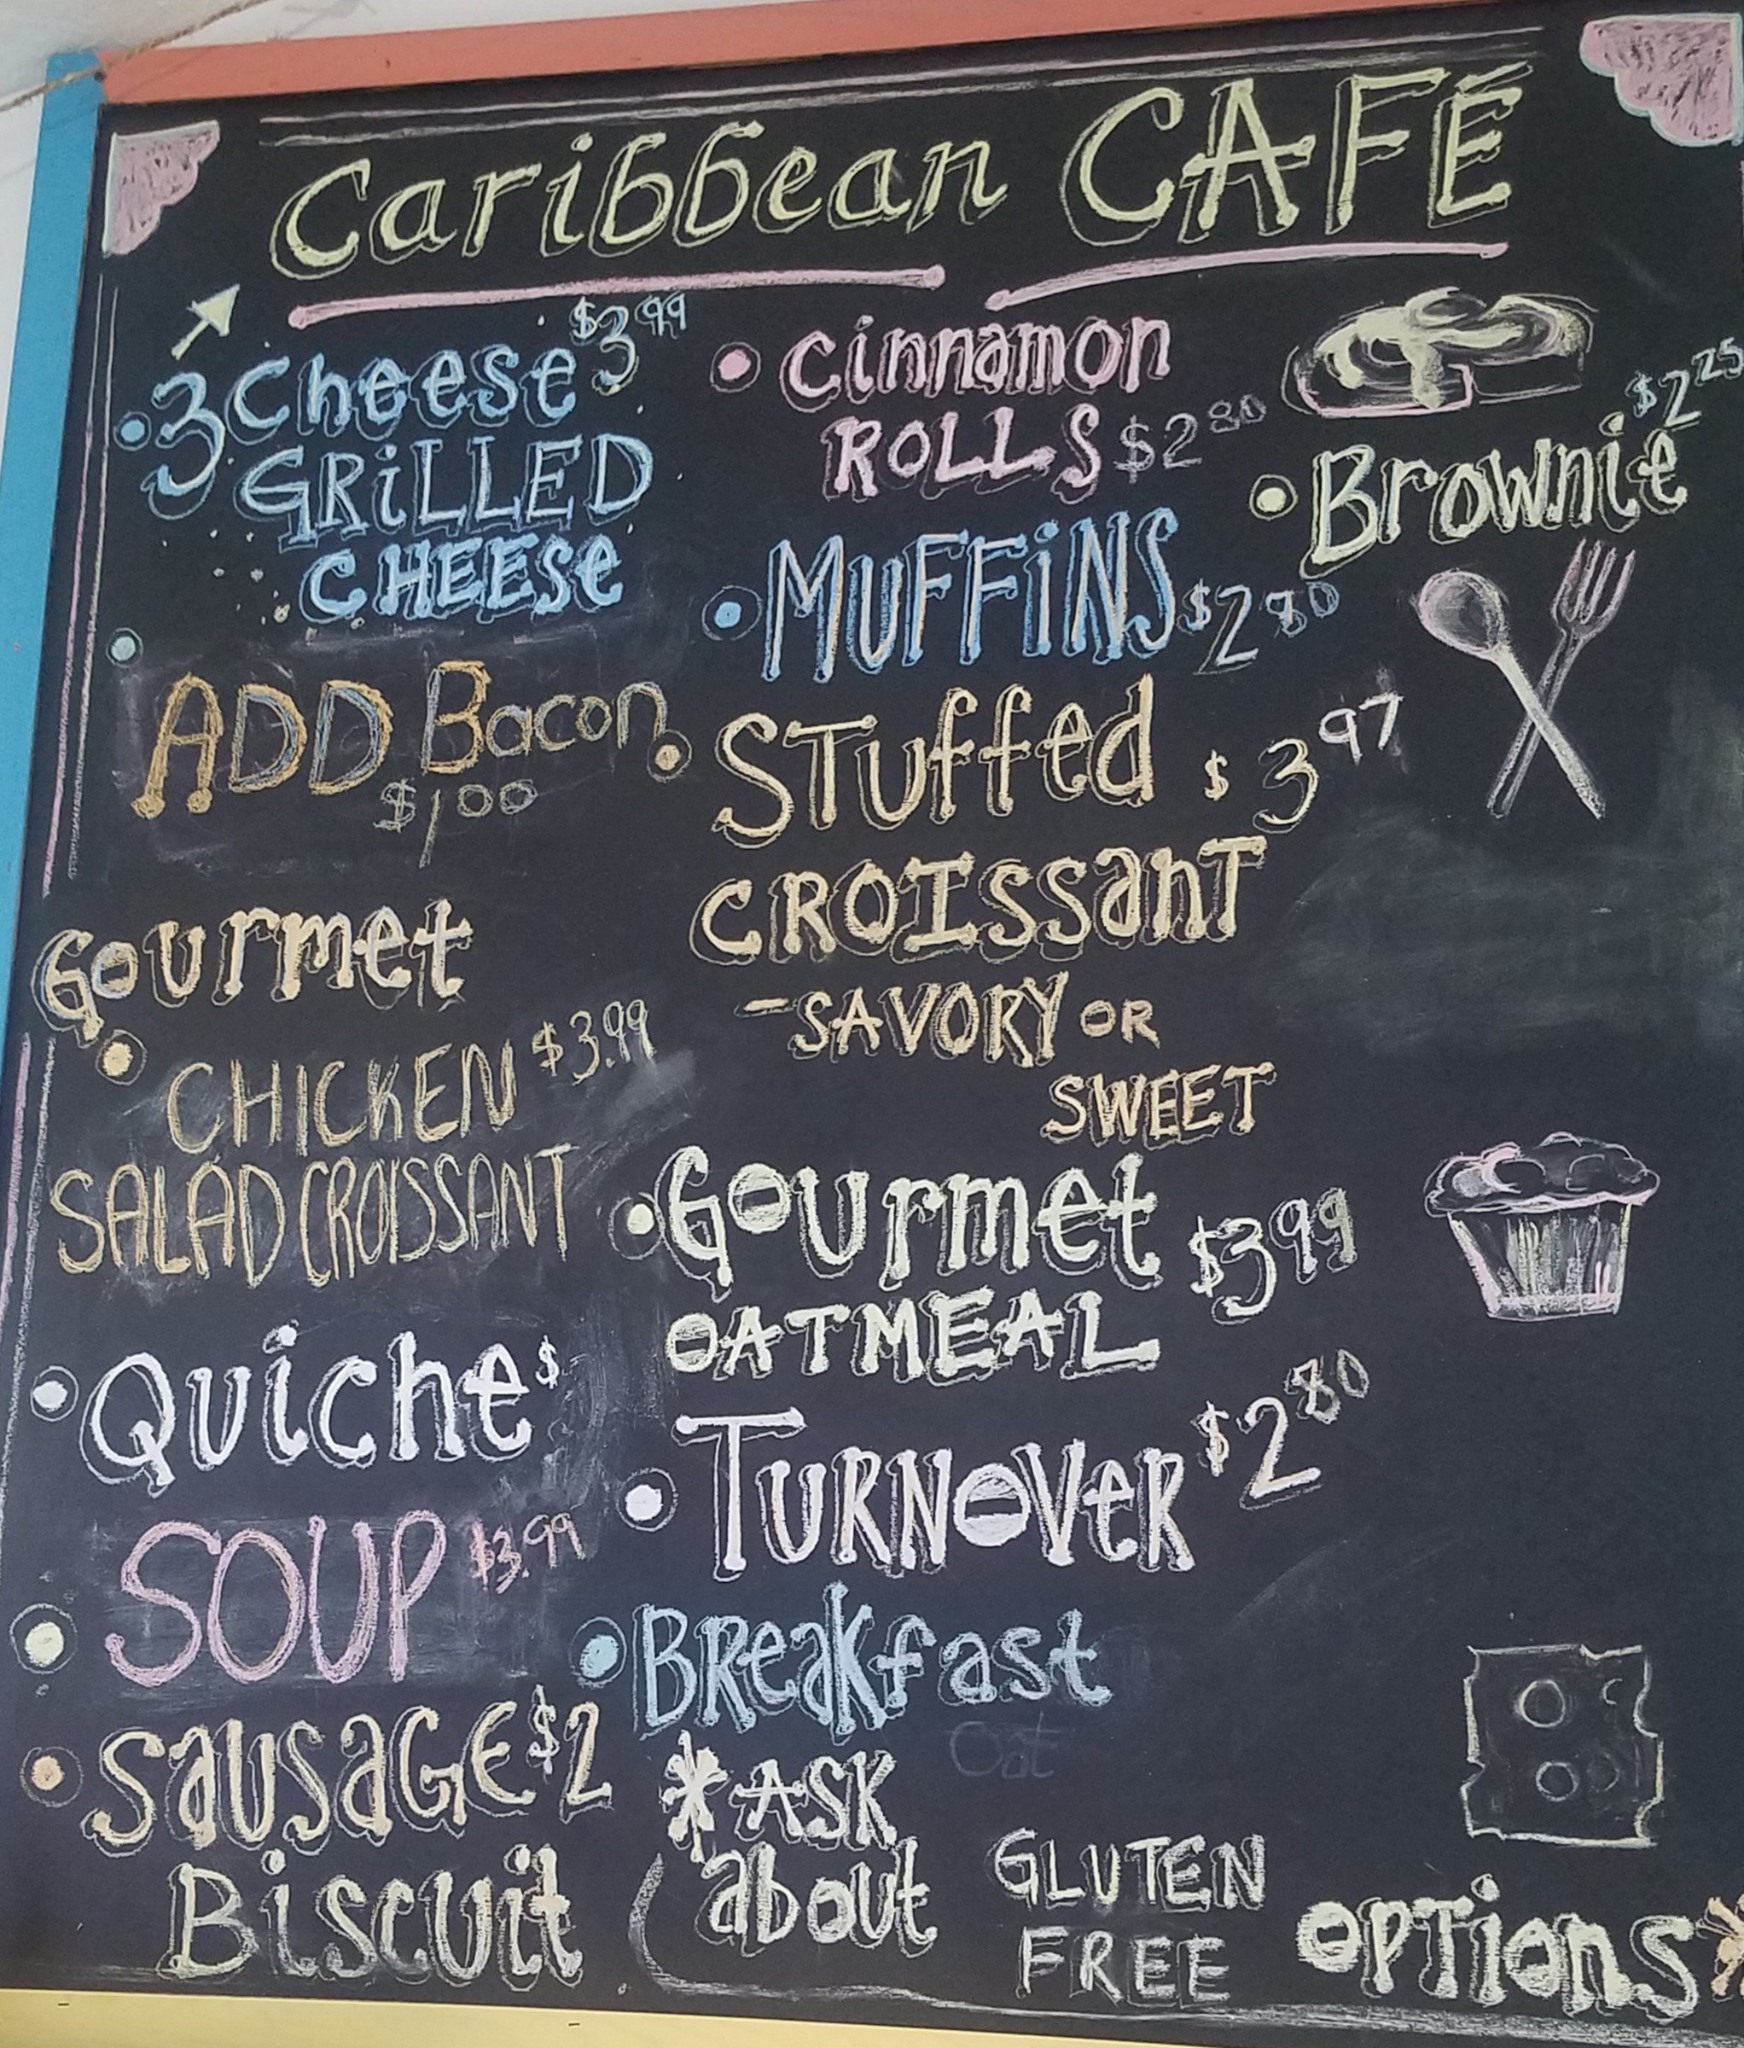 Caribbean CAFÉ
3 Cheese $3.99
GRiLLED
CHEESe
ADD Bacon
$1.00
Gourmet
CHICKEN $3.99
SALAD CROISSANT
Quiche $
SOUP $3.99
SAUSAGE $2
Biscuit
Cinnamon
ROLLS $2.80
Brownie $2.25
MUFFiNS $2.80
STuffed $3.97
CROISSanT
-SAVORY OR
SWEET
Gourmet $3.99
OATMEAL
TURNOVeR $2.80
BReakfast
Oat
*ASK
about GLUTEN
FREE OPTions*